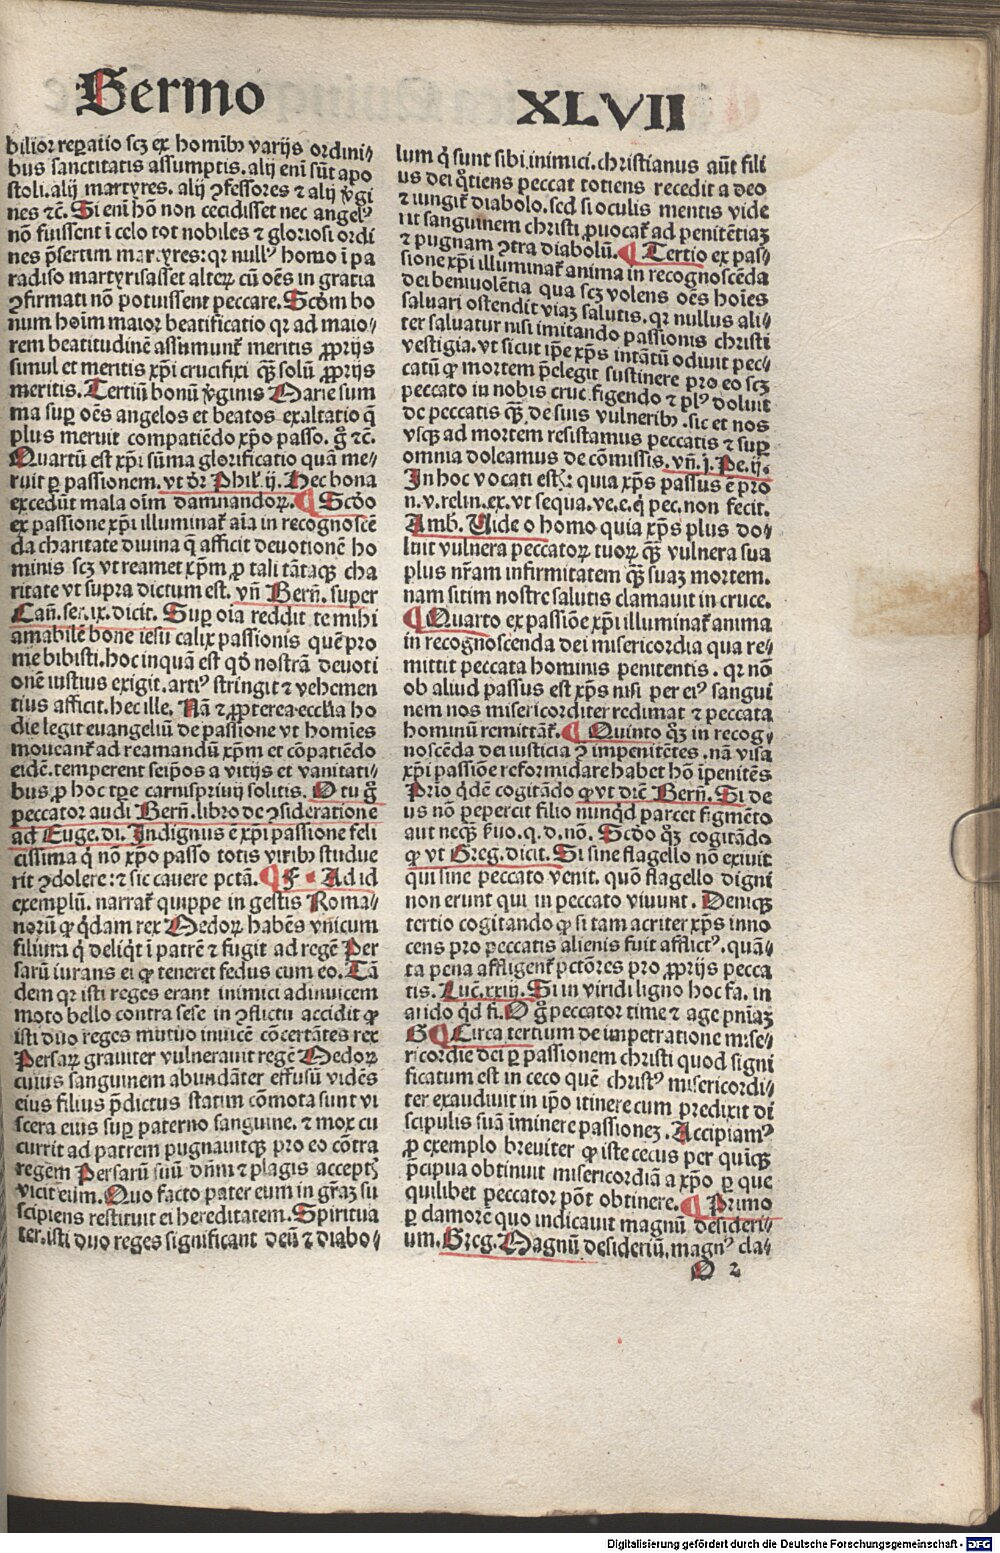 Sermo XLVII
bilior repatio scz ex hoīnib9 varijs ordini⸗
bus sanctitatis assumptis. alij eni sūt apo
stoli. alij martyres. alij ꝯfessores ⁊ alij v̄gi
nes ⁊c̄. Si eni hō non cecidisset nec angelꝰ
nō fuissent ī celo tot nobiles ⁊ gloriosi ordi
nes p̄sertim martyres: qꝛ nullꝰ homo ī pa
radiso martyrisasset alteꝝ cū oēs in gratia
ꝯfirmati nō potuissent peccare. Scd̄m bo
num hoīm maior beatificatio qꝛ ad maio⸗
rem beatitudinē assumunt᷑ meritis ꝓprijs
simul et meritis xp̄i crucifixi qꝫ̄ solū ꝓprijs
meritis. Tertiū bonū v̄ginis Marie sum
ma suꝑ oēs angelos et beatos exaltatio q̄
plus meruit compatiēdo xp̄o passo. g̊ ⁊c̄.
Quartū est xp̄i sūma glorificatio quā me⸗
ruit ꝑ passionem. vt dr̄ Phil̓. ij. Hec bona
excedūt mala oīm damnandoꝝ. ¶ Scd̄o
ex passione xp̄i illuminat᷑ aīa in recognoscē
da charitate diuina q̄ afficit deuotionē ho
minis scꝫ vt reamet xp̄m ꝓ tali tātaqꝫ cha
ritate vt supra dictum est. vn̄ Bern̄. super
Can̄. ser. ix. dicit. Suꝑ oīa reddit te mihi
amabilē bone iesu calix passionis quē pro
me bibisti. hoc inquā est qd̓ nostrā deuoti
onē iustius exigit. artiꝰ stringit ⁊ vehemen
tius afficit. hec ille. Nā ⁊ ꝓpterea ecclīa ho
die legit euangeliū de passione vt homīes
moueant᷑ ad reamandū xp̄m et cōpatiēdo
eidē. temperent seip̄os a vitijs et vanitati⸗
bus ꝓ hoc tp̄e carnispriuij solitis. O tu g̊
peccator audi Bern̄. libro de ꝯsideratione
ad Euge. di. Indignus ē xp̄i passione feli
cissima q̇ nō xp̄o passo totis virib9 studue
rit ꝯdolere: ⁊ sic cauere pctā. ¶ F. Ad id
exemplū. narrat᷑ quippe in gestis Roma⸗
norū ꝙ q̇dam rex Medoꝝ habēs vnicum
filium q̇ deliq̇t ī patrē ⁊ fugit ad regē Per
sarū iurans ei ꝙ teneret fedus cum eo. Tā
dem qꝛ isti reges erant inimici adinuicem
moto bello contra sese in ꝯflictu accidit ꝙ
isti duo reges mutuo inuicē cōcertātes rex
Persaꝝ grauiter vulnerauit regē Medoꝝ
cuius sanguinem abundāter effusū vidēs
eius filius p̄dictus statim cōmota sunt vi
scera eius suꝑ paterno sanguine. ⁊ mox cu
currit ad patrem pugnauitqꝫ pro eo cōtra
regem Persarū suū dn̄m ⁊ plagis acceptꝭ
vicit eum. Quo facto pater eum in gr̄aꝫ su
scipiens restituit ei hereditatem. Spiritua
ter. isti duo reges significant deū ⁊ diabo⸗
lum q̇ sunt sibi inimici. christianus aūt fili
us dei q̊tiens peccat totiens recedit a deo
⁊ iungit᷑ diabolo. sed si oculis mentis vide
rit sanguinem christi ꝓuocat᷑ ad penitētiaꝫ
⁊ pugnam ꝯtra diabolū. ¶ Tertio ex pas⸗
sione xp̄i illuminat᷑ anima in recognoscēda
dei beniuolētia qua scꝫ volens oēs hoīes
saluari ostendit viaꝫ salutis. qꝛ nullus ali⸗
ter saluatur nisi imitando passionis christi
vestigia. vt sicut ip̄e xp̄s intātū odiuit pec⸗
catū ꝙ mortem p̄elegit sustinere pro eo scꝫ
peccato in nobis crucifigendo ⁊ plꝰ doluit
de peccatis qꝫ̄ de suis vulnerib9. sic et nos
vsqꝫ ad mortem resistamus peccatis ⁊ suꝑ
omnia doleamus de cōmissis. vn̄. j. Pe. ij.
In hoc vocati est᷑: quia xp̄s passus ē pro
n. v. relin. ex. vt sequa. ve. e. q̇ pec. non fecit.
Amb̓. Uide o homo quia xp̄s plus do⸗
luit vulnera peccatoꝝ tuoꝝ qꝫ̄ vulnera sua
plus nr̄am infirmitatem qꝫ̄ suaꝫ mortem.
nam sitim nostre salutis clamauit in cruce.
¶ Quarto ex passiōe xp̄i illuminat᷑ anima
in recognoscenda dei misericordia qua re⸗
mittit peccata hominis penitentis. qꝛ nō
ob aliud passus est xp̄s nisi per eiꝰ sangui
nem nos misericorditer redimat ⁊ peccata
hominū remittat᷑. ¶ Quinto qꝫ̄ in recog⸗
noscēda dei iusticia ꝯ impenitētes. nā visa
xp̄i passiōe reformidare habet hō īpenitēs
Prīo q̇dē cogitādo ꝙ vt dic̄ Bern̄. Si de
us nō pepercit filio nunq̇d parcet figmēto
aut neqꝫ̄ ẜuo. q. d. nō. Scd̄o qꝫ̄ cogitādo
ꝙ vt Greg. dicit. Si sine flagello nō exiuit
qui sine peccato venit. quō flagello digni
non erunt qui in peccato viuunt. Deniqꝫ
tertio cogitando ꝙ si tam acriter xp̄s inno
cens pro peccatis alienis fuit afflictꝰ. quā⸗
ta pena affligent᷑ pctōres pro ꝓprijs pecca
tis. Luc̄. xxiij. Si in viridi ligno hoc fa. in
arido q̇d fi. O g̊ peccator time ⁊ age pn̄iaꝫ
G ¶ Circa tertium de impetratione mise⸗
ricordie dei ꝑ passionem christi quod signi
ficatum est in ceco quē christꝰ misericordi⸗
ter exaudiuit in ip̄o itinere cum predixit di
scipulis suā īminere passionez. Accipiamꝰ
ꝓ exemplo breuiter ꝙ iste cecus per quīqꝫ
p̄cipua obtinuit misericordiā a xp̄o ꝑ que
quilibet peccator pōt obtinere. ¶ Primo
ꝑ clamorē quo indicauit magnū desideri⸗
um. Greg. Magnū desideriū. magnꝰ cla⸗
O 2
Digitalisierung gefördert durch die Deutsche Forschungsgemeinschaft - DFG